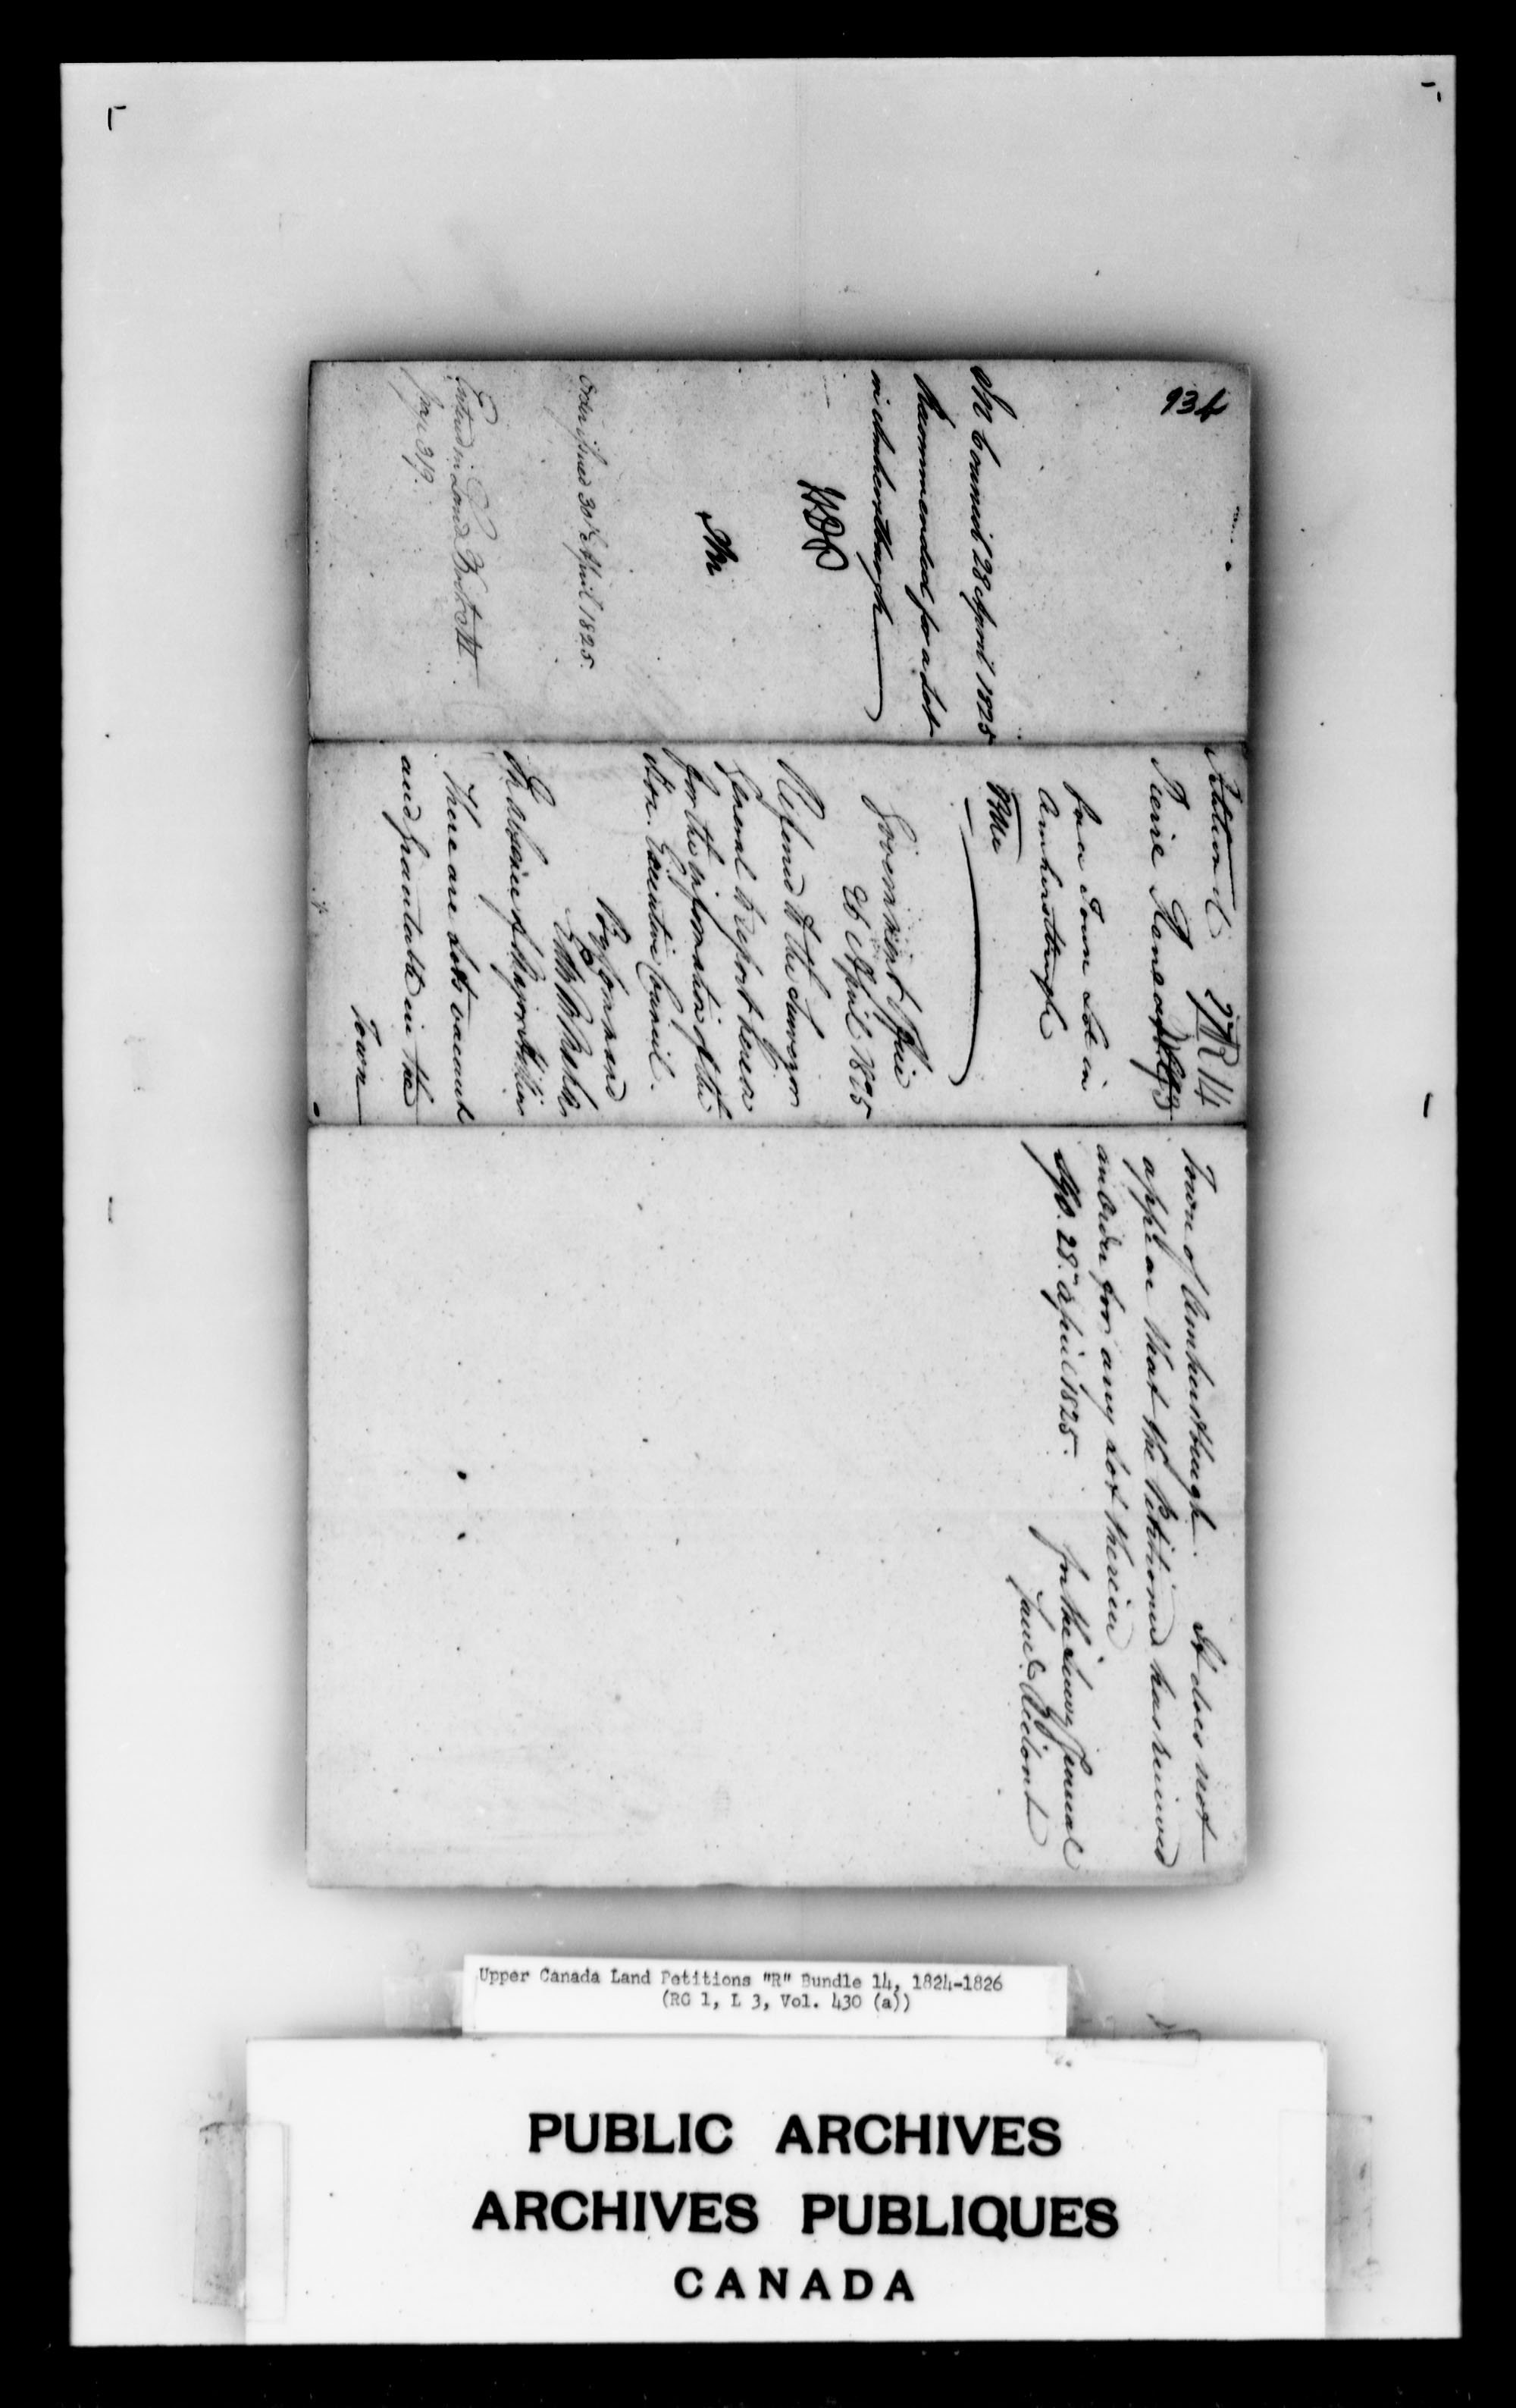 93b
In Council 28 April 1825
Recommended for a Lot
in Amherstburgh
WDP
PM
Order issued 30th April 1825.
Entered in Land Book M
page 319.
Petition of R 14
Pierre Renaud 93
for a Town Lot in
Amherstburgh
Government Office
26 April 1825
Referred to the Surveyor
General to report hereon
for the information of the
Hon. Executive Council.
By Command
In absence of Major Hillier
There are Lots vacant
and grantable in the
Town
Town of Amherstburgh. It does not
appear that the Petitioner has received
an Order for any Lot therein
SGO. 28th April 1825.
for the Survr General
Samel Ridout
Upper Canada Land Petitions "R" Bundle 14, 1824-1826
(RG 1, L 3, Vol. 430 (a))
PUBLIC ARCHIVES
ARCHIVES PUBLIQUES
CANADA